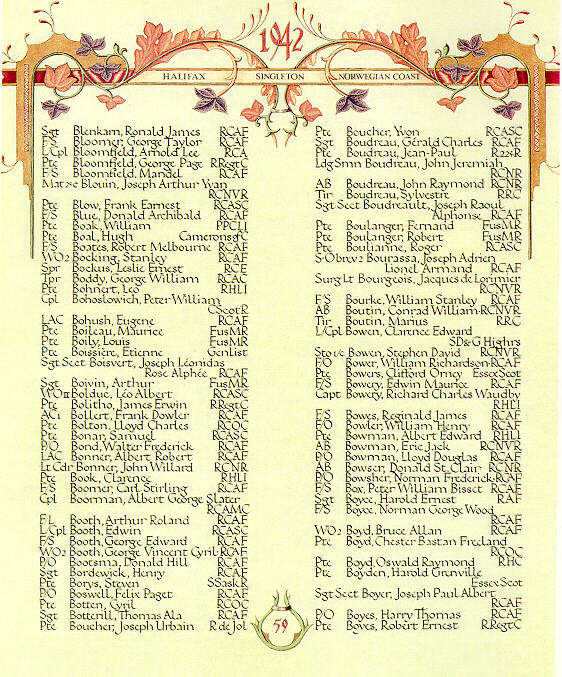 1942
HALIFAX SINGLETON NORWEGIAN COAST
Sgt Blenkarn, Ronald James RCAF
F/S Bloomer, George Taylor RCAF
L/Cpl Bloomfield, Arnold Lee RCA
Pte Bloomfield, George Page RRegtC
F/S Bloomfield, Mandel RCAF
Mat 2e Blouin, Joseph Arthur Yvan
RCNVR
Pte Blow, Frank Earnest RCASC
F/S Blue, Donald Archibald RCAF
Pte Boak, William PPCLI
Pte Boal, Hugh CameronsofC
F/S Boates, Robert Melbourne RCAF
WO2 Bocking, Stanley RCAF
Spr Bockus, Leslie Ernest RCE
Tpr Boddy, George William RCAC
Pte Bohnert, Leo RHLI
Cpl Bohoslowich, Peter William
CScotR
LAC Bohush, Eugene RCAF
Pte Boileau, Maurice FusMR
Pte Boily, Louis FusMR
Pte Boissière, Etienne GenList
Sgt Sect Boisvert, Joseph Léonidas
Rose Alphée RCAF
Sgt Boivin, Arthur FusMR
WOII Bolduc, Léo Albert RCASC
Pte Bolitho, James Erwin RRegtC
AC1 Bollert, Frank Dowler RCAF
Pte Bolton, Lloyd Charles RCOC
Pte Bonar, Samuel RCASC
P/O Bond, Walter Frederick RCAF
LAC Bonner, Albert Robert RCAF
Lt Cdr Bonner, John Willard RCNR
Pte Book, Clarence RHLI
F/S Boomer, Carl Stirling RCAF
Cpl Boorman, Albert George Slater
RCAMC
F/L Booth, Arthur Roland RCAF
L/Cpl Booth, Edwin RCASC
F/S Booth, George Edward RCAF
WO2 Booth, George Vincent Cyril RCAF
P/O Bootsma, Donald Hill RCAF
Sgt Bordewick, Henry RCAF
Pte Borys, Steven SSaskR
P/O Boswell, Felix Paget RCAF
Pte Botten, Cyril RCOC
Sgt Botterill, Thomas Ala RCAF
Pte Boucher, Joseph Urbain R de Jol
Pte Boucher, Yvon RCASC
Sgt Boudreau, Gérald Charles RCAF
Pte Boudreau, Jean-Paul R22eR
Ldg Smn Boudreau, John Jeremiah
RCNR
AB Boudreau, John Raymond RCNR
Tir Boudreau, Sylvestre RRC
Sgt Sect Boudreault, Joseph Raoul
Alphonse RCAF
Pte Boulanger, Fernand FusMR
Pte Boulanger, Robert FusMR
Pte Boulianne, Roger RCASC
S-O brev 2 Bourassa, Joseph Adrien
Lionel Armand RCAF
Surg Lt Bourgeois, Jacques de Lorimier
RCNVR
F/S Bourke, William Stanley RCAF
AB Boutin, Conrad William RCNVR
Tir Boutin, Marius RRC
L/Cpl Bowen, Clarence Edward
SD&G Highrs
Sto 1/c Bowen, Stephen David RCNVR
F/O Bower, William Richardson RCAF
Pte Bowers, Clifford Orney EssexScot
F/S Bowery, Edwin Maurice RCAF
Capt Bowery, Richard Charles Waudby
RHLI
F/S Bowes, Reginald James RCAF
F/O Bowler, William Henry RCAF
Pte Bowman, Albert Edward RHLI
AB Bowman, Eric Jack RCNVR
P/O Bowman, Lloyd Douglas RCAF
AB Bowser, Donald St. Clair RCNR
P/O Bowsher, Norman Frederick RCAF
F/S Box, Peter William Bisset RCAF
Sgt Boyce, Harold Ernest RAF
F/S Boyce, Norman George Wood
RCAF
WO2 Boyd, Bruce Allan RCAF
Pte Boyd, Chester Bastan Freeland
RCOC
Pte Boyd, Oswald Raymond RHC
Pte Boyden, Harold Grenville
EssexScot
Sgt Sect Boyer, Joseph Paul Albert
RCAF
P/O Boyes, Harry Thomas RCAF
Pte Boyes, Robert Ernest RRegtC
59